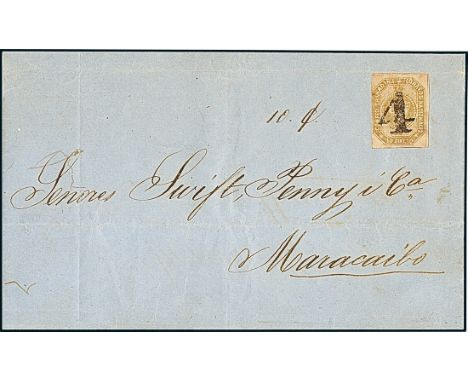 4
10. ₵
Señores Swift, Penny i Ca.
Maracaibo